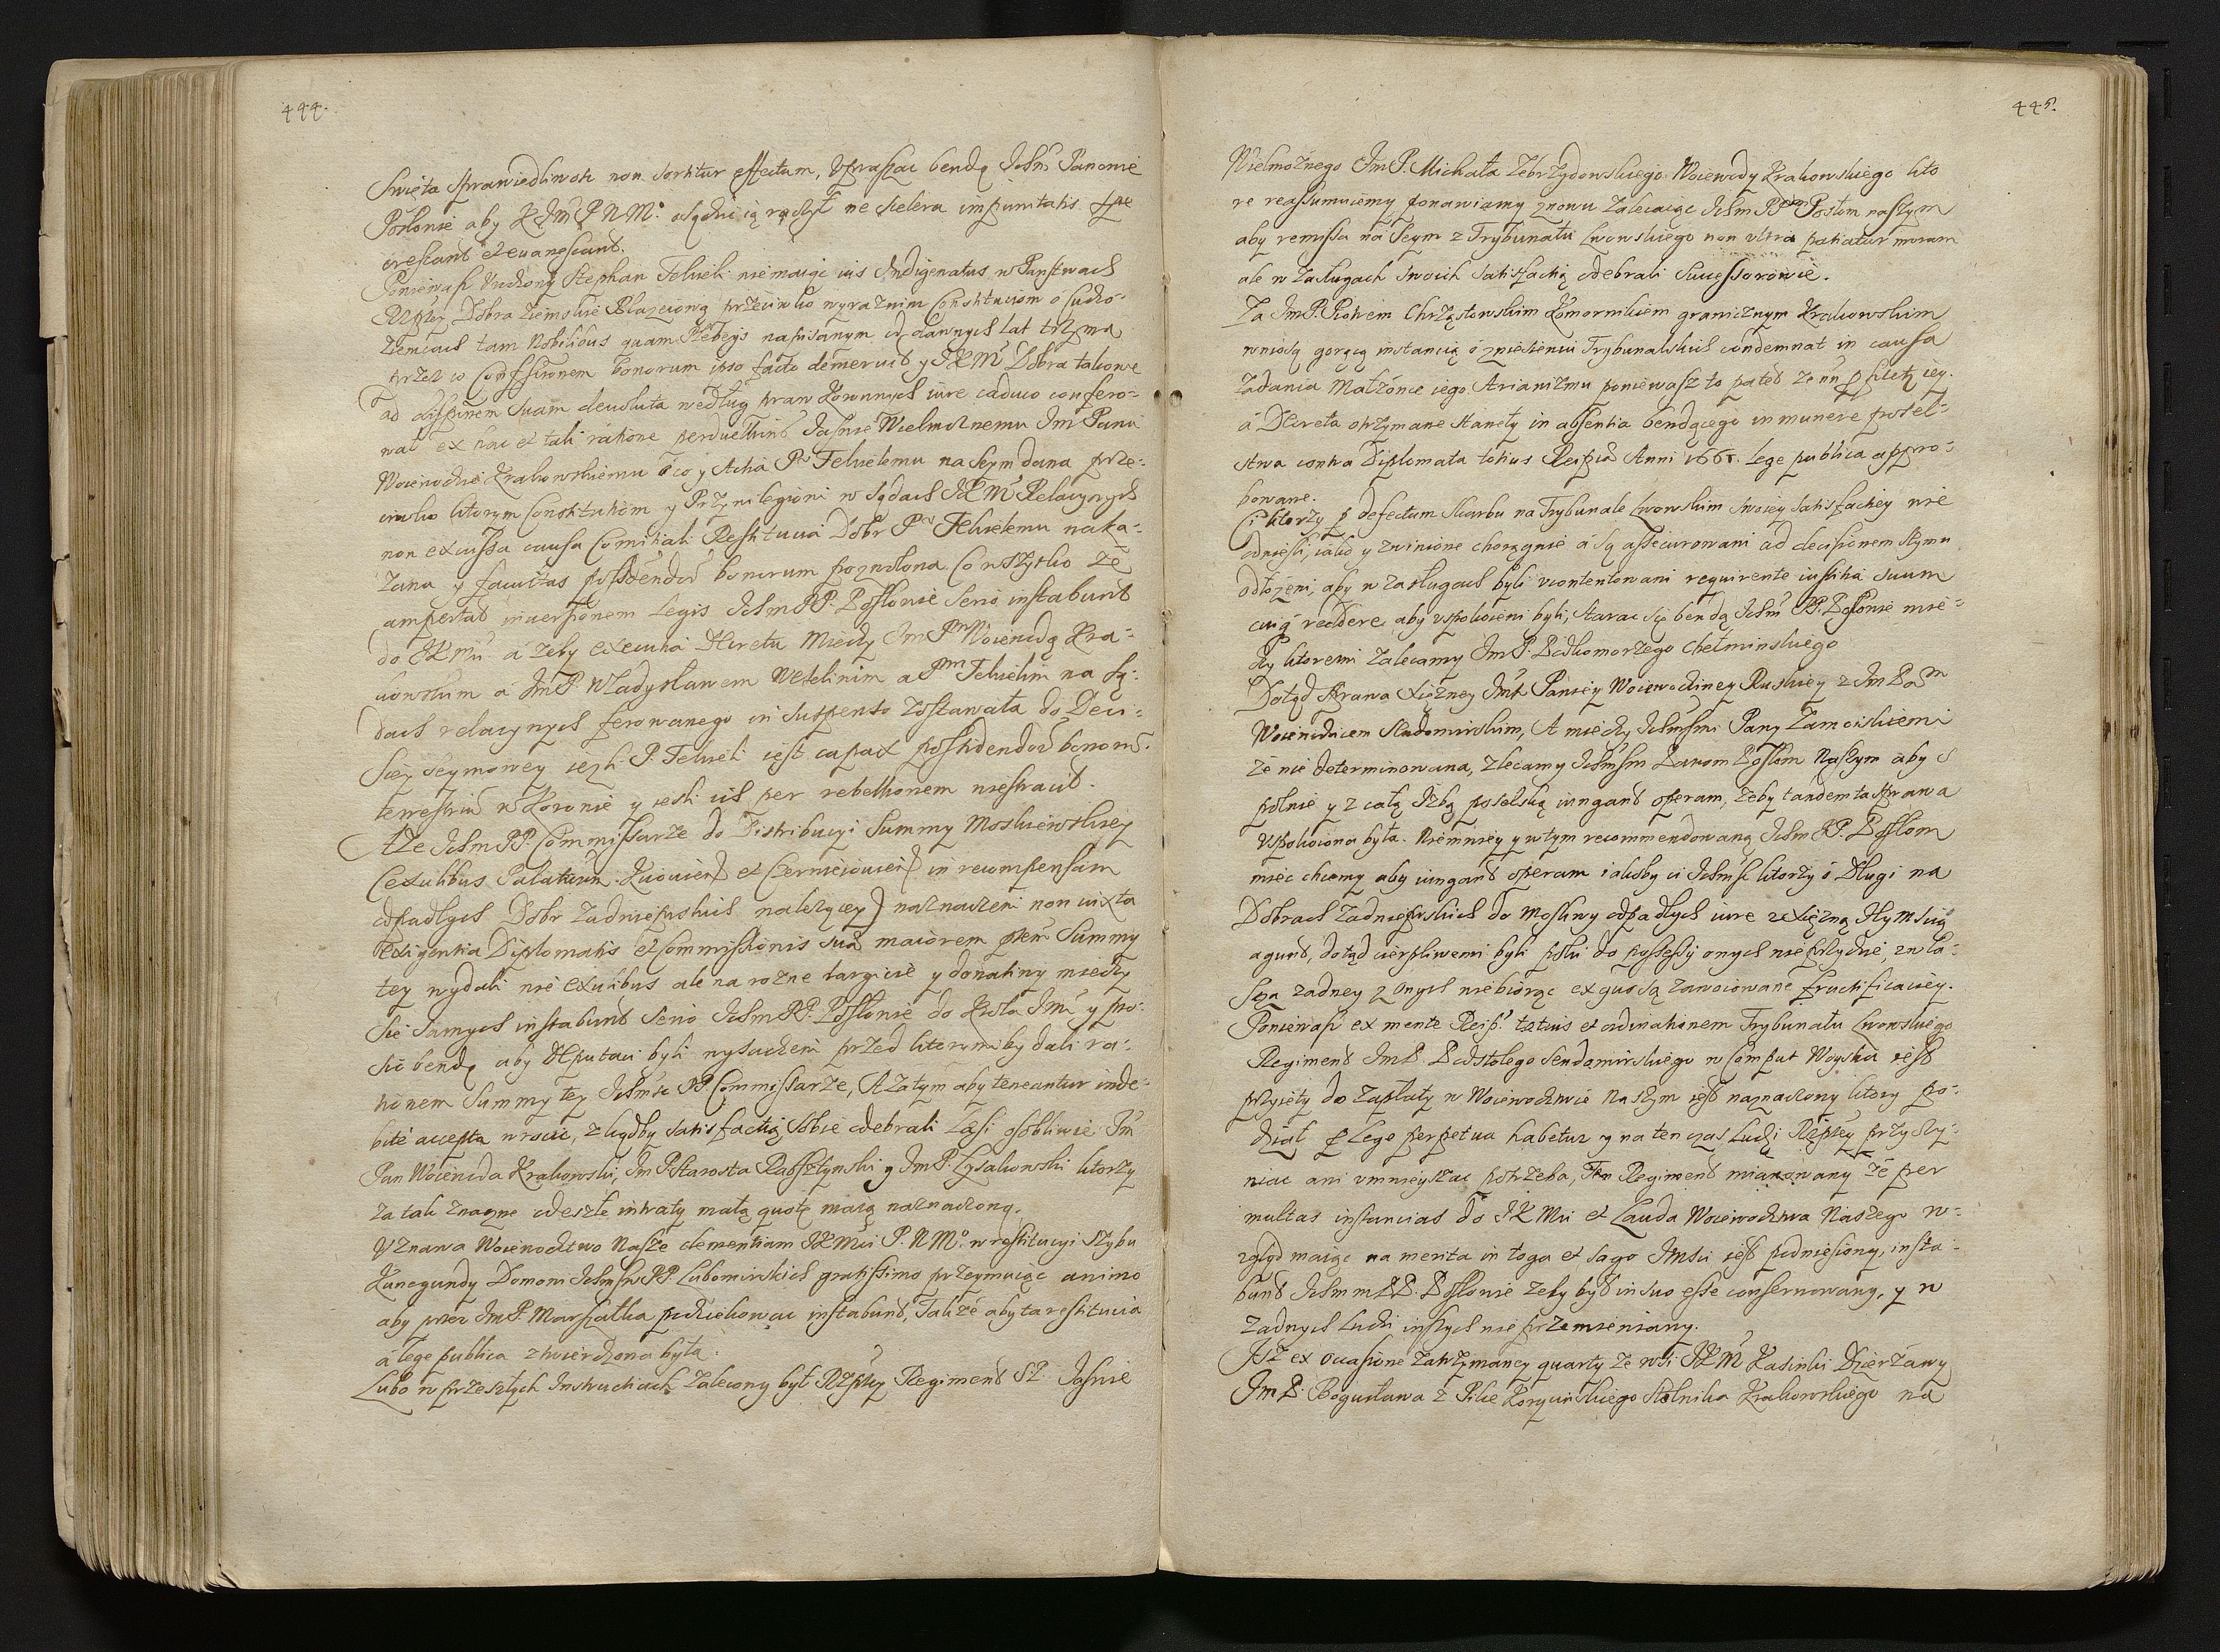 444.
Swięta sprawiedliwosc non sortitur effectum, Upraszac bendą Ichm̃ Panowie
Posłowie aby K Jm̃ P N M⁰. osądzic ią raczył ne scelera impunitatis spe
crescant et evanescant.
Poniewasz Urodzony Stephan Tekieli niemaiąc ius Indigenatus w Panstwach
Rzptey Dobra ziemskie Płazcioną przeciwko wyraznim Constituciom o Cudzo-
ziemcach tam Nobilibus quam Plebeys napisanym od dawnych lat trzyma
przez co Confessionem bonorum ipso facto demeruit y JKM Dobra takowe
ad dispõnem suam devoluta według praw Koronnych iure caduco confero-
wał ex hac et tali ratione perduellium Jasnie Wielmoznemu Jm Panu
Woiewodzie Krakowskiemu o co y Actia Pᵘ Tekielemu na Seym dana prze-
ciwko ktorym Constituciom y Przywilegiom w sądach JKM Relacyinych
non excussa causa Comitiali Restitucia Dobr Pᵘ Tekielemu naka-
zana y facultas possidendor bonorum pozwolona Co wszytko ze
importat inversionem Legis Ichm PP. Posłowie serio instabunt
do JKMci a zeby executia Decretu miedzy Jm Pᵐ Woiewodą Kra-
kowskim a Jm P. Władysławem Wetelinim a Pᵐ Tekielim na Są-
dach relacyinych ferowanego in suspenso zostawała do Deci-
siey Seymowey iezli P. Tekieli iest capax possidendor bonorũ
terrestriũ w Koronie y iesli iis per rebellionem niestracił.
Ze Ichm PP. Commissarze do Distribucyi Summy Moskiewskiey
(exulibus Palatuum Kiiovien et Czerniechovien in recompensam
odpadłych Dobr Zadnieprskich nalezącey) naznaczeni non iuxta
exigentia Diplomatis et Commissionis sua maiorem ptem Summy
tey wydali nie exulibus ale na rozne largicie y donatiny miedzy
sie samych instabunt serio Ichm PP. Posłowie do Krola Jm̃ y pro-
sic bendą aby Deputaci byli wysadzeni przed ktoremi by dali ra-
tionem Summy tey Ichmsc PP. Commissarze, A zatym aby teneantur inde-
bite accepta wrocic, z kądby satisfactią sobie odebrali Læsi osobliwie Jm
Pan Woiewoda Krakowski, Jm P. Starosta Rabsztynski y Jm P. Łysakowski ktorzy
za tak znaczne odeszłe intraty małą quotę maią naznaczoną.
Uznawa Woiewodztwo Nasze clementiam JKMci P. N M⁰. w restitucyi Szybu
Kunegundy Domowi Ichmsc PP. Lubomirskich gratissimo przeymuiąc animo
aby przez Jm P. Marszałka podziekowac instabunt, Takze aby ta restitucia
a lege publica ztwierdzona była.
Lubo w przeszłych Instructiach zalecony był Rzptey Regiment SP. Jasnie
445.
Wielmoznego Jm P. Michała Zebrzydowskiego Woiewody Krakowskiego kto
re reassumuiemy ponawiamy znowu zalecaiąc Ichm PPᵐ Posłom naszym
aby remissa na Seym z Trybunału Lwowskiego non ultra patiatur moram
ale w zasługach swoich satisfactią odebrali Successorowie.
Za Jm P. Piotrem Chrząstowskim Komornikiem granicznym Krakowskim
wniosą gorącą instancią o zniesienie Trybunalskich condemnat in causa
zadania Małzonce iego Arianizmu poniewasz to patet ze
a Decreta otrzymane stanęły in absentia bendącego in munere posel-
stwa contra Diplomata totius Reipcæ Anni 1661. Lege publica appro-
bowane.
Ci ktorzy p defectum skarbu na Trybunale Lwowskim swoiey satisfactiey nie
odniesli, iako y zwinione chorągwie a są assecurowani ad decisionem Seymu
odłozeni, aby w zasługach byli ucontentowani requirente iustitia suum
cuiq̃ reddere aby uspokoieni byli, starac się bendą Ichm PP. Posłowie mie-
dzy ktoremi zalecamy Jm P. Podkomorzego Chełminskiego
Dotąd sprawa Xięzney Jmsc Paniey Woiewodziney Ruskiey z Jm Paᵐ
Woiewodzicem Sandomirskim, A miedzy Ichmscmi Pany Zamoiskiemi
ze nie determinowana, zlecamy Ichmscm Panom Posłom Naszym aby s
pilnie y z całą Izbą poselską iungant operam, zeby tandem ta sprawa
uspokoiona była. Niemniey y w tym recommendowaną Ichm PP. Posłom
miec chcemy aby iungant operam iakoby ci Ichmsc ktorzy o Długi na
Dobrach Zadnieprskich do Moskwy odpadłych iure z Xięzną Jeymscią
agunt, dotąd cierpliwemi byli poki do possessy onych nieprzydzie, zwła-
sza zadney z onych niebiorąc ex quo są zawoiowane fructificaciey.
Poniewasz ex mente Reip. totius et ordinationem Trybunału Lwowskiego
Regiment Jm P. Podstolego Sendomirskiego w Comput Woyska iest
przyięty do zapłaty w Woiewodztwie Naszym iest naznaczony ktory po-
dział p Lege perpetua habetur y na ten czas ludzi Rzptey przyczy-
niac ani umnieyszac potrzeba, Ten Regiment mianowany ze per
multas instancias do JKMci et Lauda Woiewodztwa Naszego w-
zgląd maiąc na merita in toga et sago Jmsci iest podniesiony, insta-
bunt Ichm mPP. Posłowie zeby był in suo esse conserwowany, y w
zadnych ludzi inszych nie przemieniany.
Isz ex occasione zatrzymaney quarty ze wsi JKM Kasinki Dzierzawy
Jm P. Bogusława z Pilce Korycinskiego Stolnika Krakowskiego na